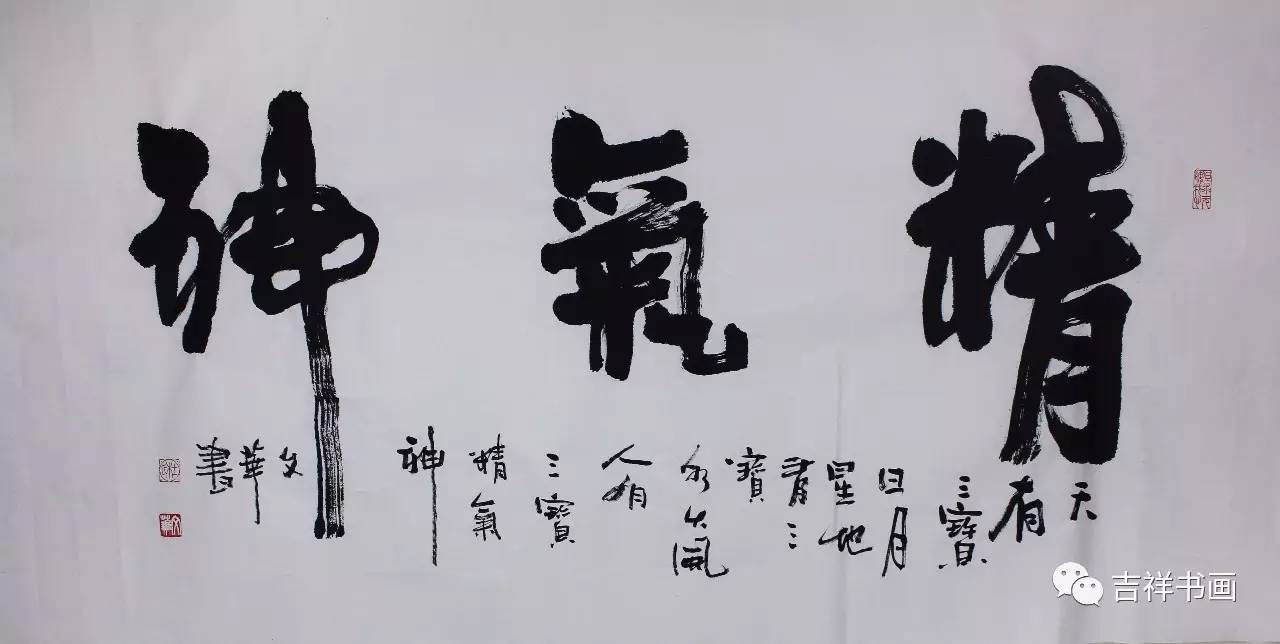 精氣神
天
有
三寶
日月
星地
有三
寶
水火風
人有
三寶
精氣
神
文
華
書
吉祥书画